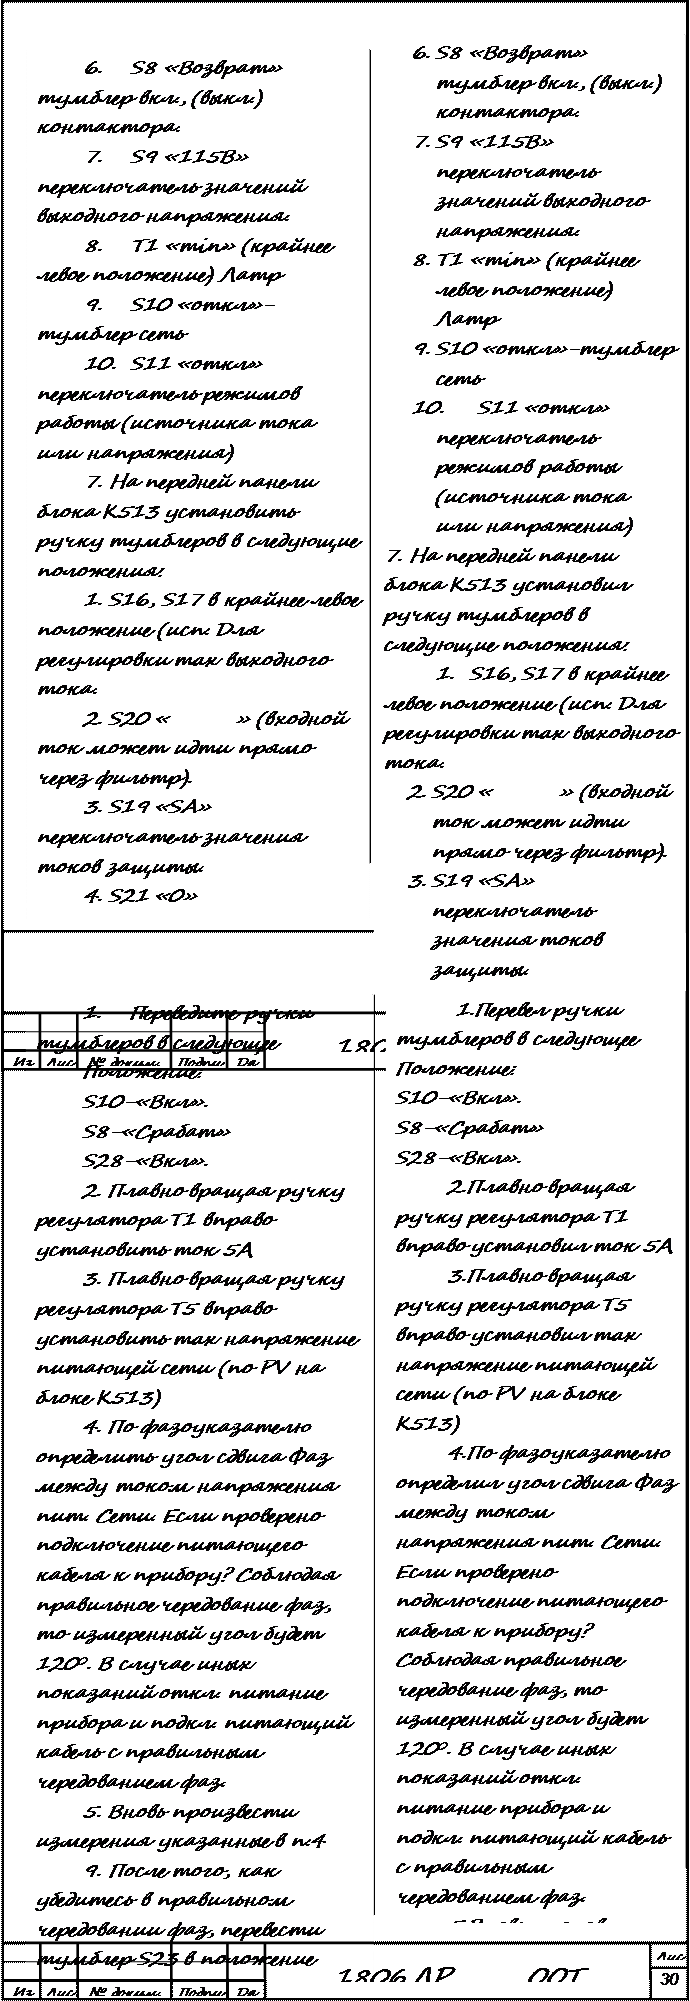 6. S8 «Возврат»
тумблер вкл., (выкл.)
контактора.
7. S9 «115В»
переключатель значений
выходного напряжения.
8. Т1 «min» (крайнее
левое положение) Латр
9. S10 «откл»–
тумблер сеть
10. S11 «откл»
переключатель режимов
работы (источника тока
или напряжения)
7. На передней панели
блока К513 установить
ручку тумблеров в следующие
положения:
1. S16, S17 в крайнее левое
положение (исп. Для
регулировки так выходного
тока.
2. S20 « » (входной
ток может идти прямо
через фильтр).
3. S19 «SA»
переключатель значения
токов защиты.
4. S21 «0»
6. S8 «Возврат»
тумблер вкл., (выкл.)
контактора.
7. S9 «115В»
переключатель
значений выходного
напряжения.
8. Т1 «min» (крайнее
левое положение)
Латр
9. S10 «откл» –тумблер
сеть
10. S11 «откл»
переключатель
режимов работы
(источника тока
или напряжения)
7. На передней панели
блока К513 установил
ручку тумблеров в
следующие положения:
1. S16, S17 в крайнее
левое положение (исп. Для
регулировки так выходного
тока.
2. S20 « » (входной
ток может идти
прямо через фильтр).
3. S19 «SA»
переключатель
значения токов
защиты.
1. Переведите ручки
тумблеров в следующее
Положение:
S10–«Вкл».
S8–«Срабат»
S28–«Вкл».
2. Плавно вращая ручку
регулятора Т1 вправо
установить ток 5А
3. Плавно вращая ручку
регулятора Т5 вправо
установить так напряжение
питающей сети (по PV на
блоке К513)
4. По фазоуказателю
определить угол сдвига Фаз
между током напряжения
пит. Сети. Если проверено
подключение питающего
кабеля к прибору? Соблюдая
правильное чередование фаз,
то измеренный угол будет
120⁰. В случае иных
показаний откл. питание
прибора и подкл. питающий
кабель с правильным
чередованием фаз.
5. Вновь произвести
измерения указанные в п.4
9. После того, как
убедитесь в правильном
чередовании фаз, перевести
тумблер S23 в положение
1.Перевел ручки
тумблеров в следующее
Положение:
S10–«Вкл».
S8–«Срабат»
S28–«Вкл».
2.Плавно вращая
ручку регулятора Т1
вправо установил ток 5А
3.Плавно вращая
ручку регулятора Т5
вправо установил так
напряжение питающей
сети (по PV на блоке
К513)
4.По фазоуказателю
определил угол сдвига Фаз
между током
напряжения пит. Сети.
Если проверено
подключение питающего
кабеля к прибору?
Соблюдая правильное
чередование фаз, то
измеренный угол будет
120⁰. В случае иных
показаний откл.
питание прибора и
подкл. питающий кабель
с правильным
чередованием фаз.
Из Лис № докум. Подпи Да
180
Из Лис № докум. Подпи Да
1806 ДР ООТ
Лис
30